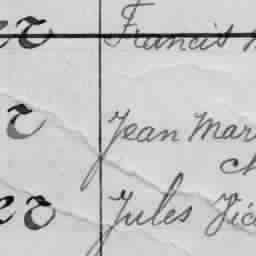 er Francis
r Jean Mar
er Jules Vic